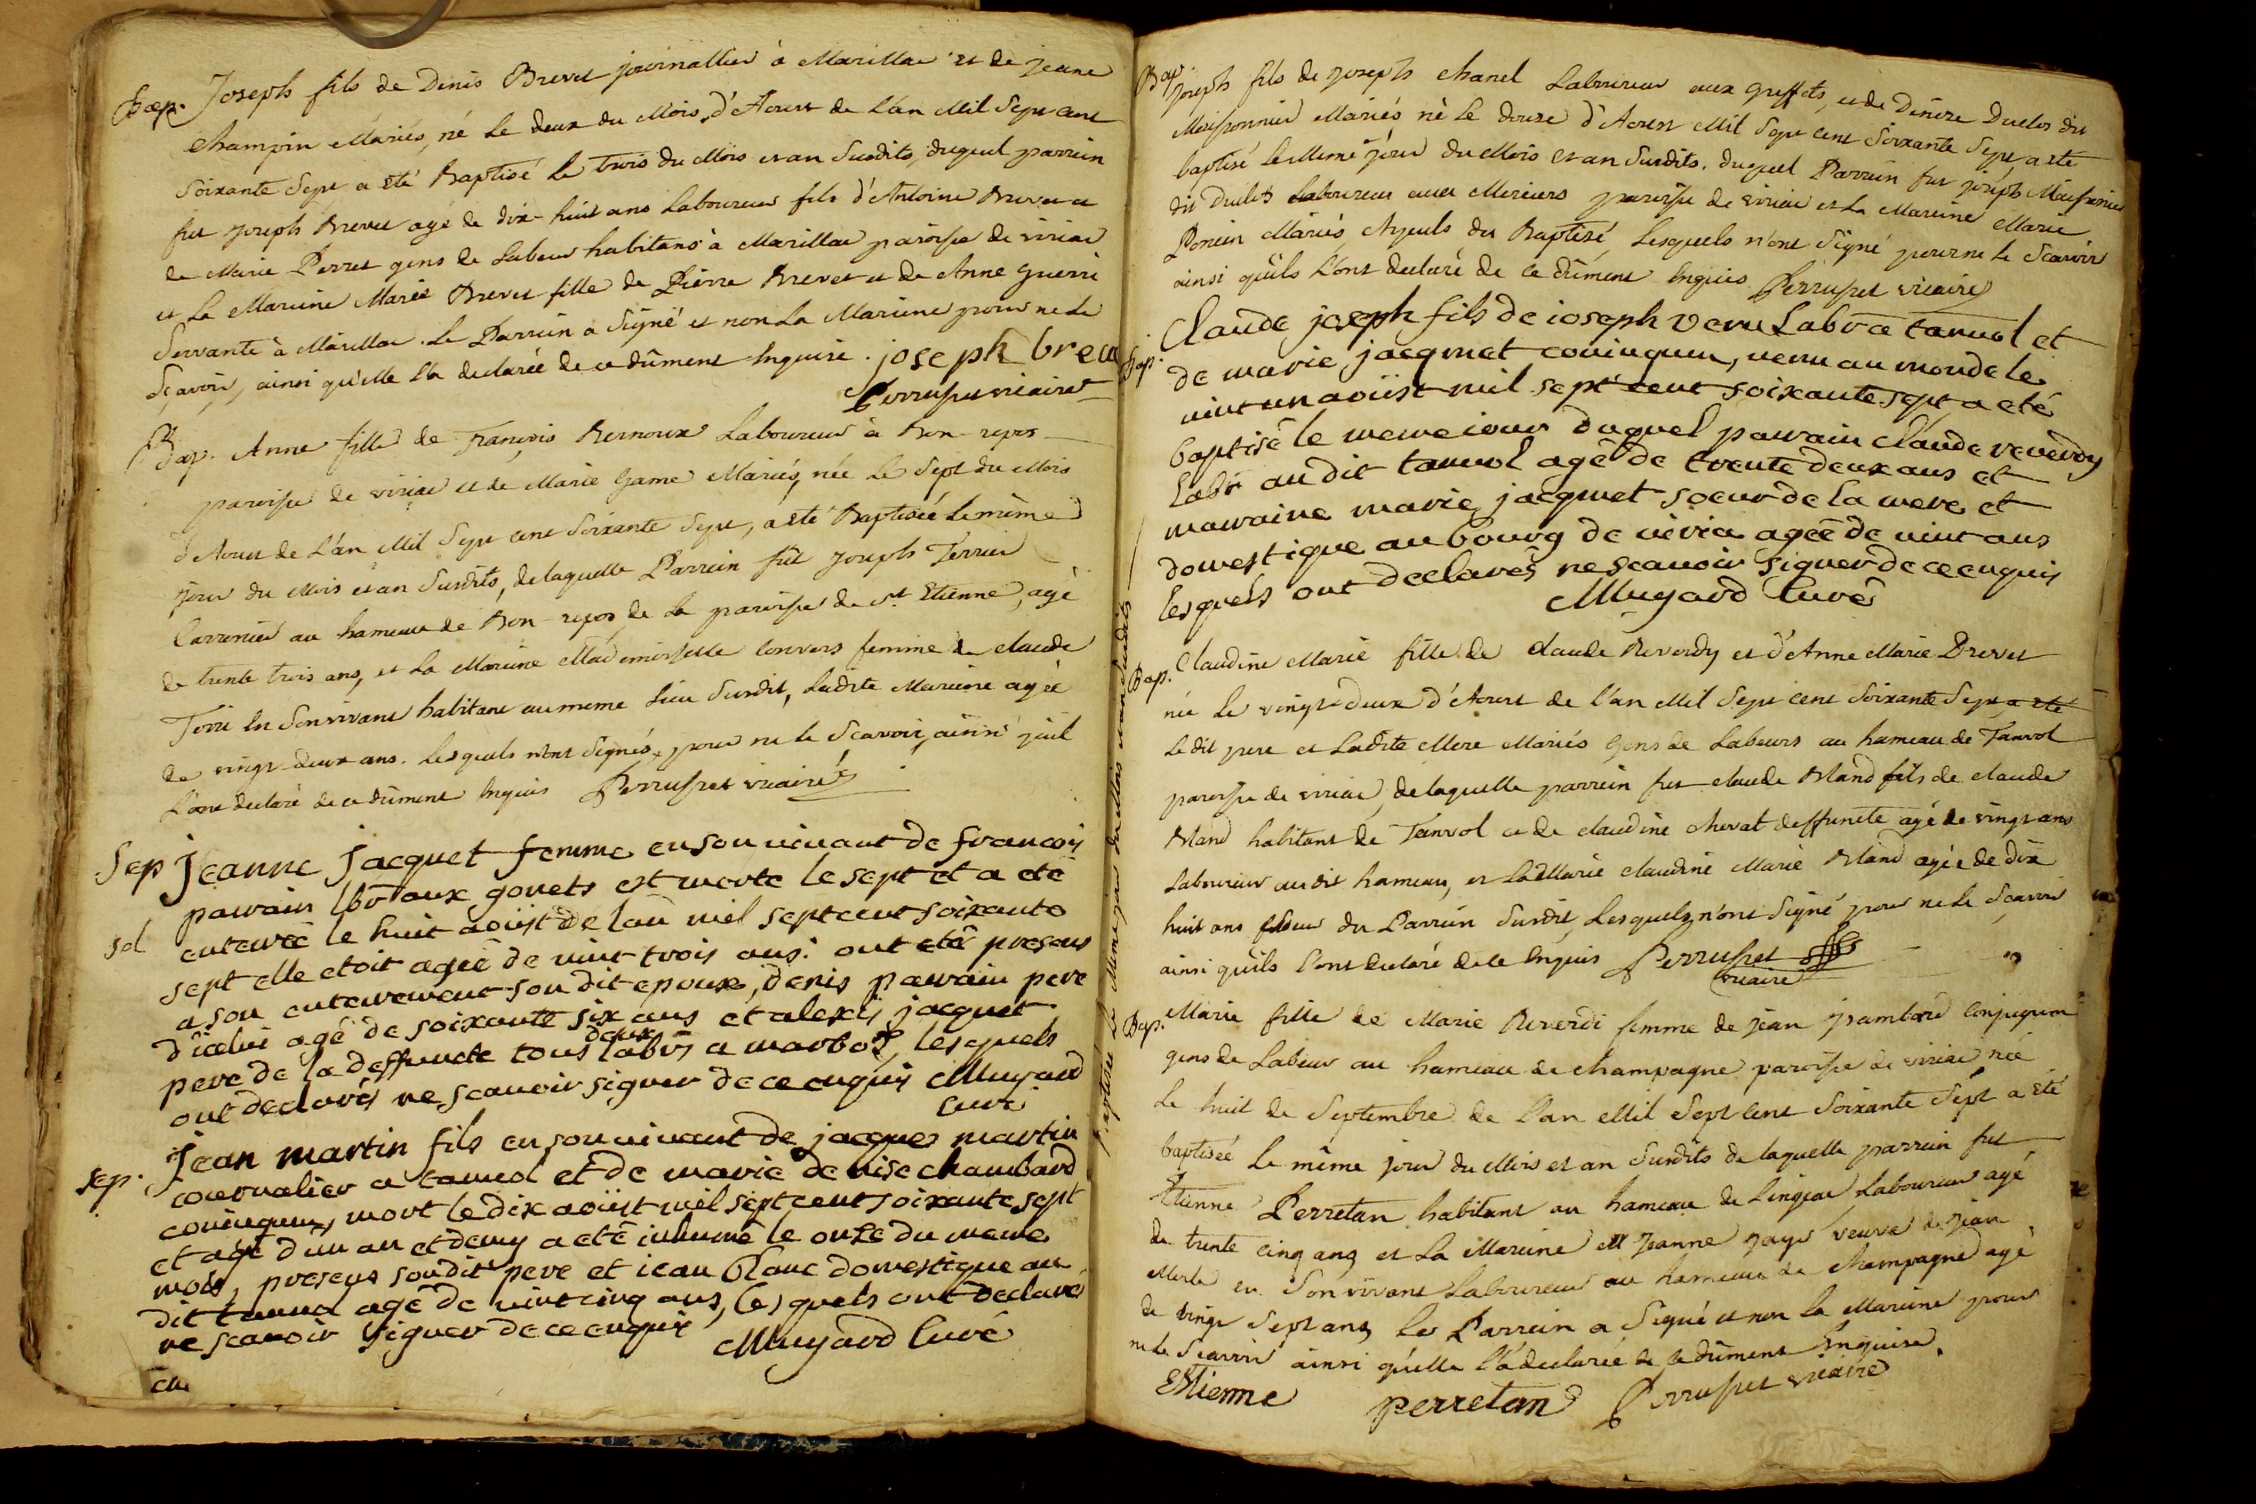 Bap. Joseph fils de Denis Brevet journallier à Marillac et de jeane
Champin Mariés, né le deux du Mois d'Aoust de L'an Mil Sept cent
Soixante Sept a été Baptisé le trois du Mois et an Susdits, duquel parrein
fut joseph Brevet agé de dix-huit ans Laboureur fils d'Antoine Brevet et
de Marie Perret gens de Labeur habitans à Marillac paroisse de viriac
et La Mareine Marie Brevet fille de Pierre Brevet et de Anne Guerri
Servante à Marillac. Le Parrein a Signé et non La Mareine pour ne le
Sçavoir, ainsi qu'elle l'a declarée de ce dûment Enquise. joseph breve
Perruset vicaire
Bap. Anne fille de François Bernoux Laboureur à Bon-repos
paroisse de viriac et de Marie Game Mariés, née Le Sept du Mois
d'Aoust de L'an Mil Sept cent Soixante Sept, a eté Baptisée le même
jour du Mois et an Susdits, de laquelle Parrein fût joseph Terrier
au hameau de Bon-repos de La paroisse de St. Etienne, agé
de trente trois ans, et La Mareine Mademoiselle Convers femme de claude
En Son vivant habitant au meme Lieu Susdit, Ladite Mareine agée
de vingt-deux ans. Lesquels n'ont Signés pour ne le Scavoir, ainsi qu'il
L'ont declaré de ce dûment Enquis Perruset vicaire
Sep Jeanne jacquet femme en son vivant de francois
pawain lbr aux gouets est morte le sept et a eté
sol enterrée le huit aoüst de lan mil sept cent soixante
sept elle etoit agée de vint trois ans. ont eté presens
a son enterrement son dit epoux, denis pawain pere
d'icelui agé de soixante six ans et alexis jacquet
pere de la deffuncte tous deux labrs a marboz, lesquels
ont declarés ne scavoir signer de ce enquis Mugard
curé
Sep. Jean martin fils en son vivant de jacques martin
journalier a tanvol et de marie denise chambard
coniugum, mort le dix aoüst mil sept cent soixante sept
et agé d'un an et demy a eté inhumé le onze du meme
mois, presens son dit pere et iean blanc domestique au
dit tanvol agé de vint cinq ans, lesquels ont declaré
ne scavoir signer de ce enquis Mugard Curé
Cla
Bap. Joseph fils de joseph chanel Laboureur aux greffets, et de Denize Duclos dit
Maisonnier Mariés né Le douze d'Aoust Mil Sept cent Soixante Sept a eté
baptisé le Meme jour du Mois et an Susdits. duquel Parrein fut joseph Maisonnier
dit Duclos Laboureur aux Meriers paroisse de viriac et La Mareine Marie
Poncin Mariés Ayeuls du Baptisé, Lesquels n'ont Signé pour ne le Scavoir
ainsi qu'ils L'ont declaré de ce dûment Enquis Perruset vicaire
Bap. Claude joseph fils de ioseph veru Labr a tanvol et
de marie jacquet coniugum, venu au monde le
vint un aoüst mil sept cent soixante sept a eté
baptisé le meme iour duquel parrain claude reverdy
labr au dit tanvol agé de trente deux ans et
marraine marie jacquet soeur de la mere et
domestique au bourg de viria agée de vint ans
lesquels ont declarés ne scavoir signer de ce enquis
Mugard Curé
Bap. Claudine Marie fille de claude Reverdy et d'Anne Marie Brevet
née Le vingt-deux d'Aoust de l'an Mil Sept cent Soixante Sept a eté
baptisée Le Meme jour du Mois et an Susdits
Le dit pere et Ladite Mere Mariés Gens de Labeurs au hameau de Tanvol
paroisse de viriac, de laquelle parrein fut claude Bland fils de claude
Bland habitant de Tanvol et de claudine chevat deffuncte agé de vingt ans
Laboureur au dit hameau, et La Marie claudine Marie Bland agée de dix
huit ans Soeur du Parrein Susdit, Lesquels n'ont Signé pour ne le Scavoir
ainsi qu'ils l'ont declaré de ce Enquis Perruset
vicaire
Bap. Marie fille de Marie Reverdi femme de jean jambard Conjugum
gens de Labeur au hameau de champagne paroisse de viriac née
Le huit de Septembre de L'an Mil Sept Cent Soixante Sept a eté
baptisée le même jour du Mois et an Susdits de laquelle parrein fut
Etienne Perretan habitant au hameau de Lingeac Laboureur agé
de trente cinq ans et La Mareine Jeanne veuve de jean
Merle en Son vivant Laboureur au hameau de champagne agé
de vingt Sept ans Le Parrein a Signé et non la Mareine pour
ne le Scavoir ainsi qu'elle l'a declarée de ce dûment Enquise.
Etienne perretan Perruset vicaire